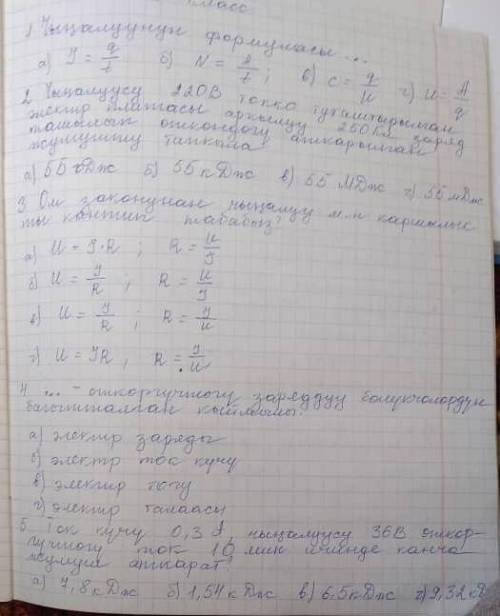 класс
1 Чыңалуунун формуласы ...
а) I = q/t б) N = A/t; в) c = q/u г) u = A/q
2 Чыңалуусу 220В токко туташтырылган
электр плитасы аркылуу 250 Кл заряд
ташылып өткөндөгү аткарылган
жумушту тапкыла
а) 55 гДж б) 55 кДж в) 55 МДж г) 55 мДж
3 Ом законунан чыңалуу м-н каршылык
ты кантип табабыз?
а) U = I·R ; R = U/I
б) U = I/R ; R = U/I
в) U = I/R ; R = I/U
г) U = IR, R = I/U
4. ... - өткөргүчтөгү заряддуу бөлүкчөлөрдүн
багытталган кыймылы.
а) электр заряды
б) электр ток күчү
в) электр тогу
г) электр талаасы
5. Ток күчү 0,3 А, чыңалуусу 36В өткөр-
гүчтөгү ток 10 мин ичинде канча
жумуш аткарат?
а) 7,8 кДж б) 1,54 кДж в) 6.5 кДж г) 9,32 кД